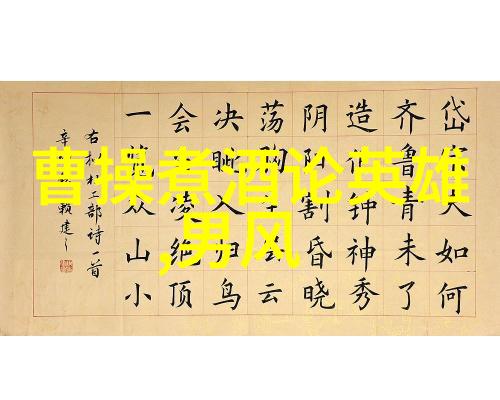 曹操煮酒论英雄
,男风
岱宗夫如何
齐鲁青未了
造化钟神秀
阴阳割昏晓
荡胸生云
决眦入归鸟
会凌绝顶
一览众山小
右工部诗一首
辛赖建